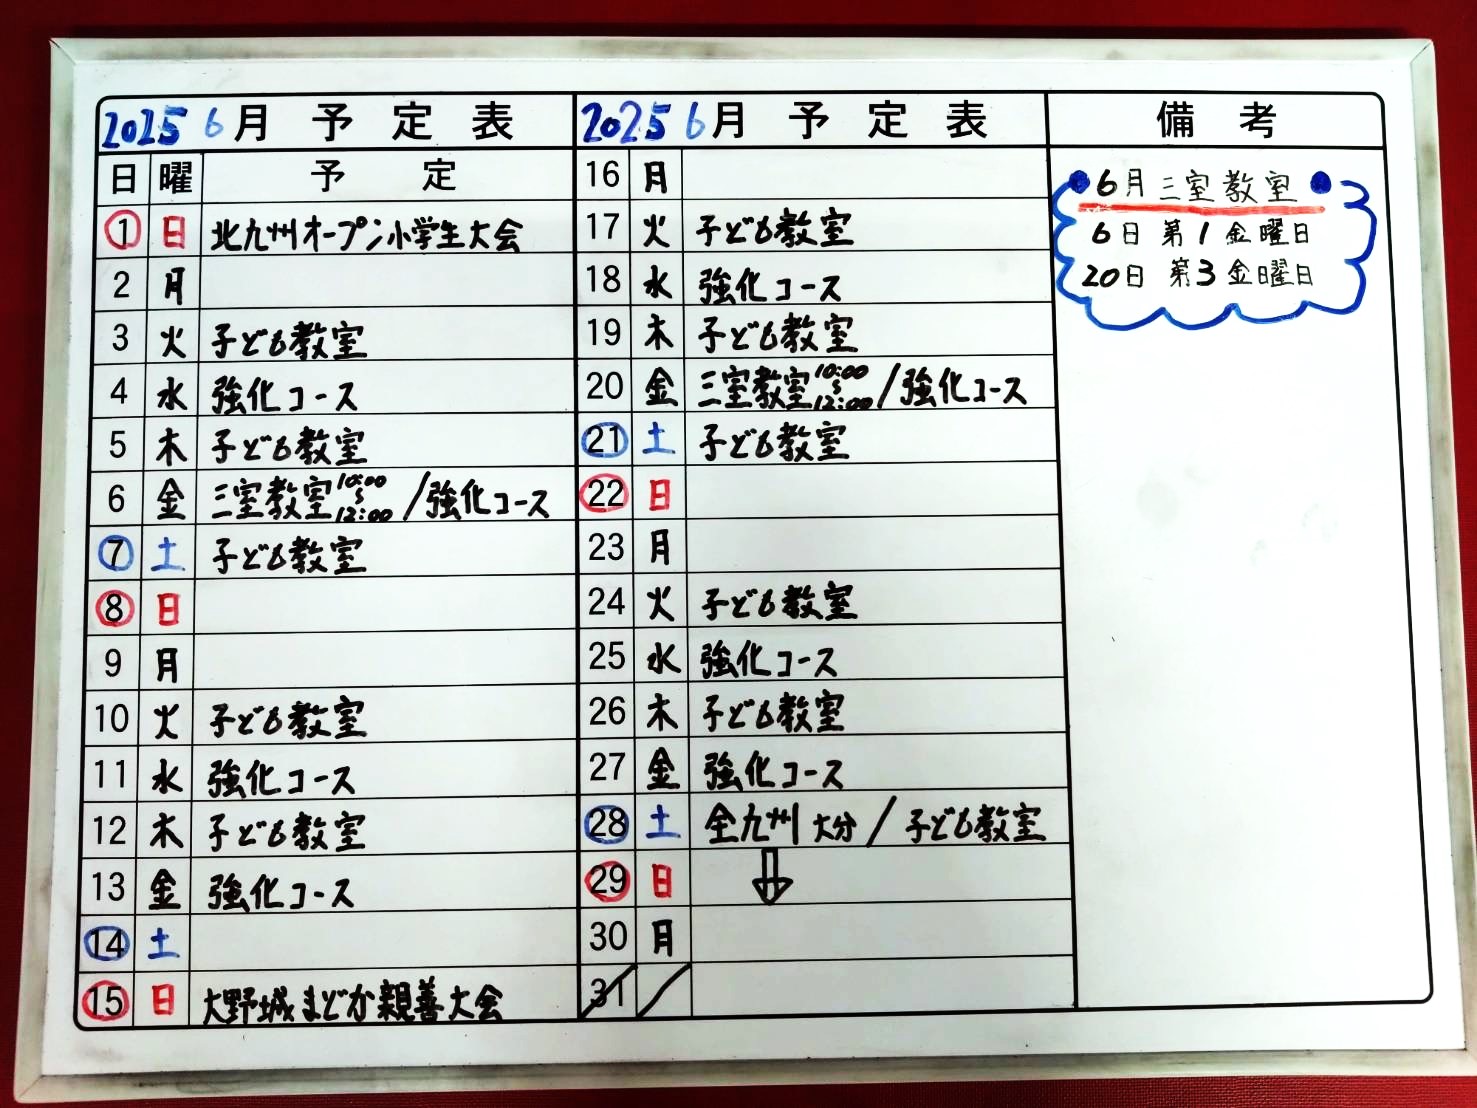 2025 6月 予定表
日 曜 予定
1 日 北九州オープン小学生大会
2 月
3 火 子ども教室
4 水 強化コース
5 木 子ども教室
6 金 三室教室 10:00〜12:00 /強化コース
7 土 子ども教室
8 日
9 月
10 火 子ども教室
11 水 強化コース
12 木 子ども教室
13 金 強化コース
14 土
15 日 大野城まどか親善大会
2025 6月 予定表
16 月
17 火 子ども教室
18 水 強化コース
19 木 子ども教室
20 金 三室教室 10:00〜12:00 /強化コース
21 土 子ども教室
22 日
23 月
24 火 子ども教室
25 水 強化コース
26 木 子ども教室
27 金 強化コース
28 土 全九州 大分 / 子ども教室
29 日 ⇓
30 月
31
備考
●6月三室教室●
6日 第1金曜日
20日 第3金曜日